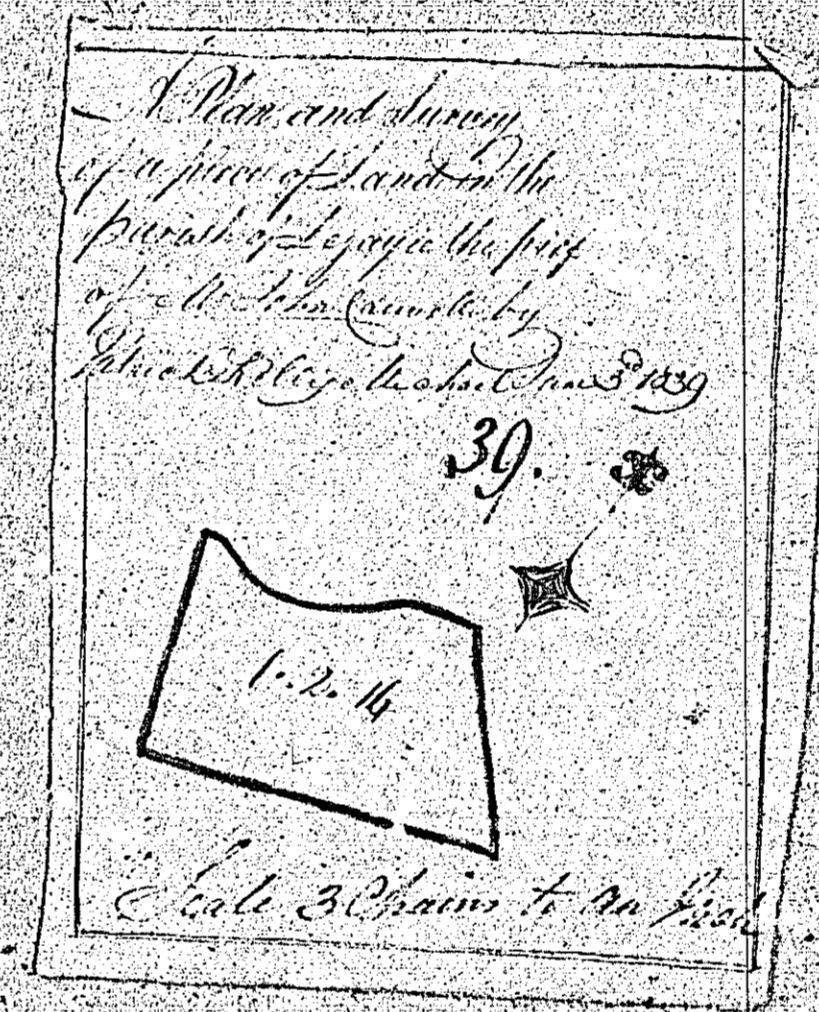 A Plan and Survey
of a piece of Land in the
parish of Lezayre the
of Mr John by
Jan 3d 1839
39.
1.. 2. 14
Scale 3 Chains to an Inch